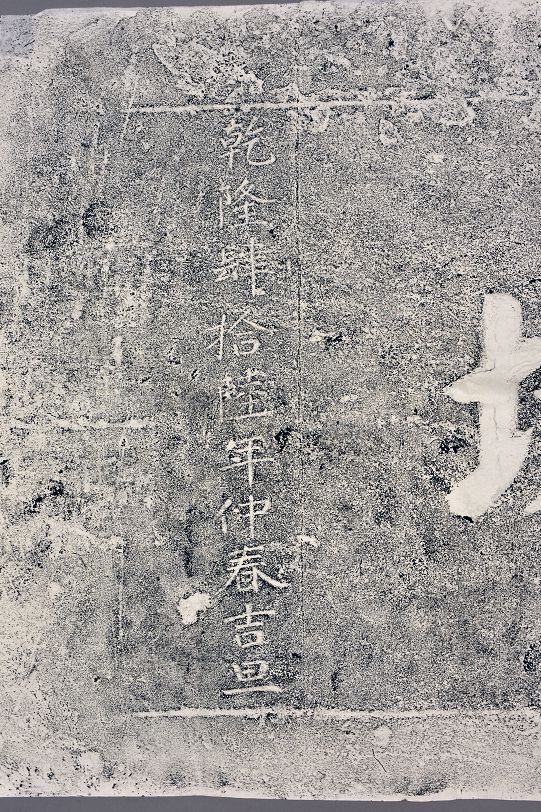 乾隆肆拾陸年仲春吉旦